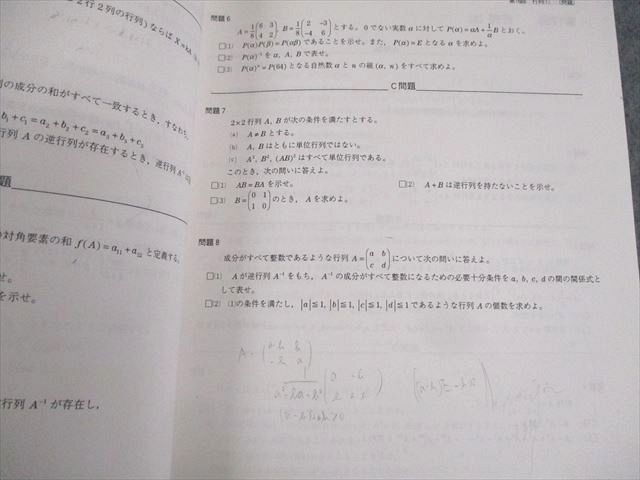 2行2列の行列)ならば X=kA
列の成分の和がすべて一致するとき,すなわち,
b₁+c₁=a₂+b₂+c₂=a₃+b₃+c₃
行列 A の逆行列が存在するとき,逆行列 A⁻¹
題
対角要素の和 f(A)=a₁₁+a₂₂ と定義する。
せ。
を示せ。
行列 A⁻¹ が存在し,
問題6
A=1/8(6 3 4 2), B=1/8(2 −3 −4 6)とする。0でない実数 α に対して P(α)=αA+1/α B とおく。
□(1) P(α)P(β)=P(αβ) であることを示せ。また,P(α)=E となる α を求めよ。
□(2) P(α)⁻¹ を α, A, B で表せ。
□(3) P(α)ⁿ=P(64) となる自然数 α と n の組 (α, n) をすべて求めよ。
C問題
問題7
2×2行列 A, B が次の条件を満たすとする。
(a) A≠B とする。
(b) A, B はともに単位行列ではない。
(c) A², B², (AB)² はすべて単位行列である。
このとき,次の問いに答えよ。
□(1) AB=BA を示せ。
□(2) A+B は逆行列を持たないことを示せ。
□(3) B=(0 1 1 0)のとき,A を求めよ。
問題8
成分がすべて整数であるような行列 A=(a b c d)について次の問いに答えよ。
□(1) A が逆行列 A⁻¹ をもち,A⁻¹ の成分がすべて整数になるための必要十分条件を a, b, c, d の間の関係式と
して表せ。
□(2) (1)の条件を満たし,|a|≦1, |b|≦1, |c|≦1, |d|≦1 であるような行列 A の個数を求めよ。